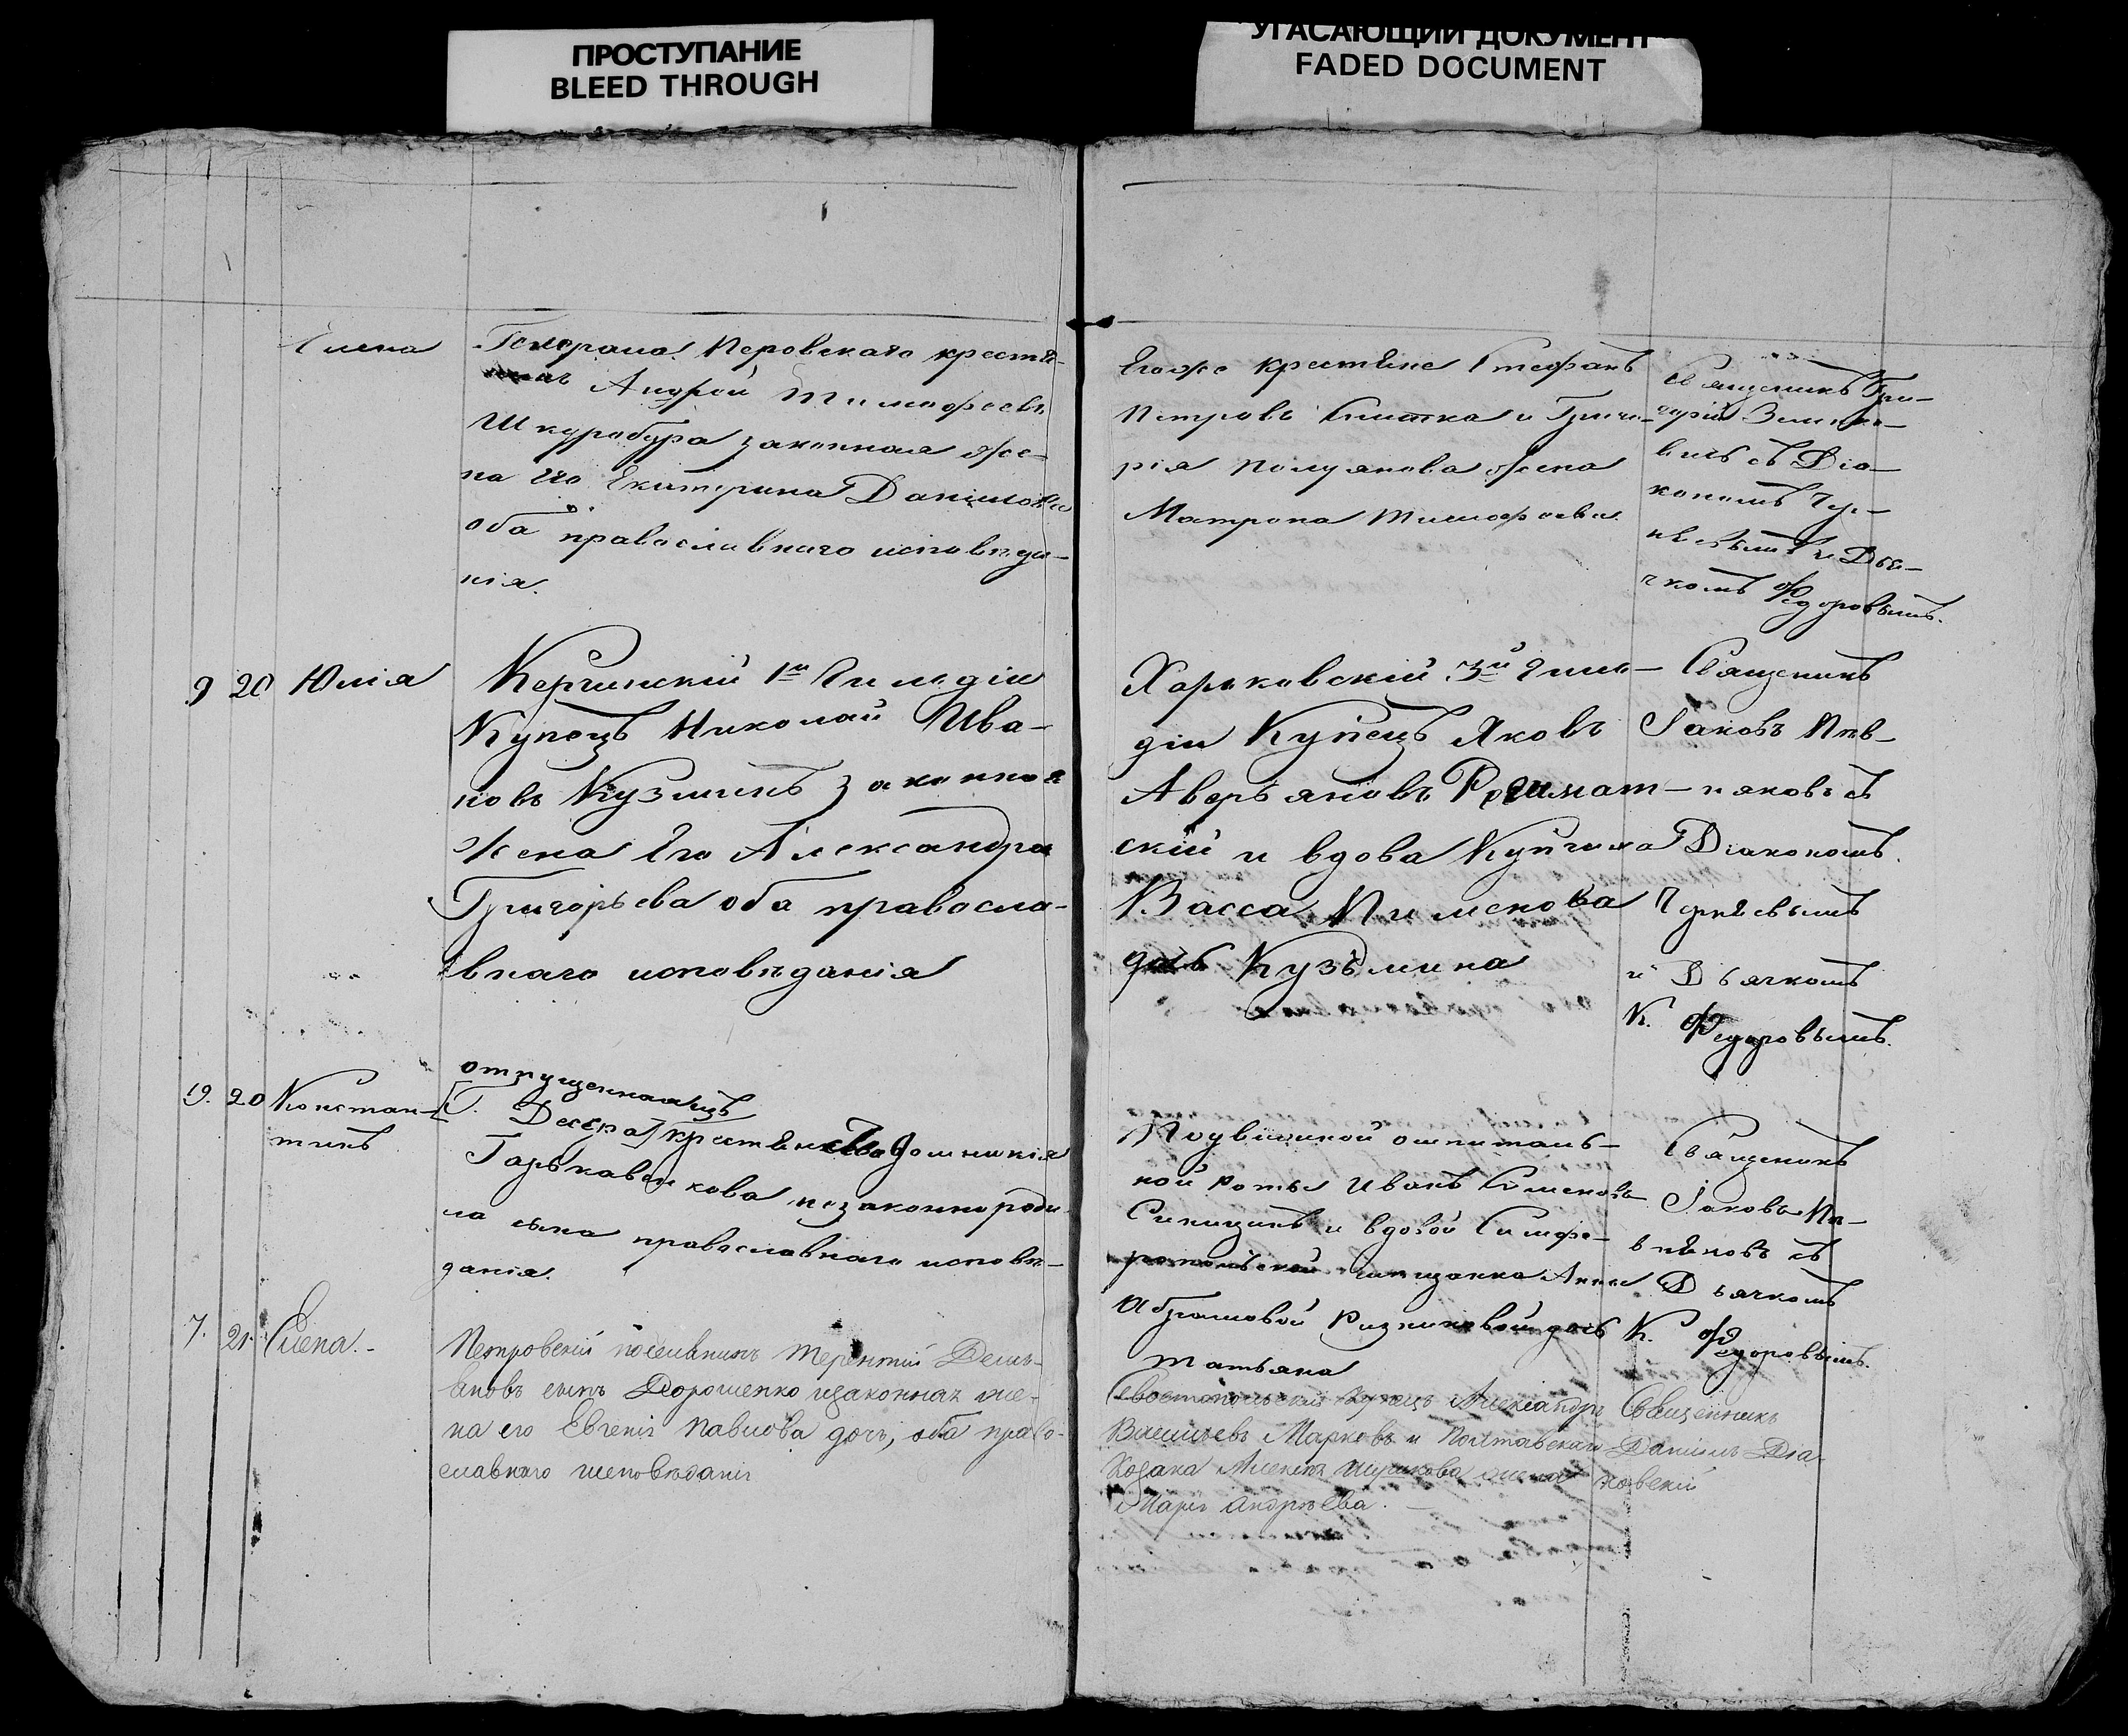 ПРОСТУПАНИЕ
BLEED THROUGH
УГАСАЮЩИЙ ДОКУМЕНТ
FADED DOCUMENT
Елена
Генерала Перовскаго крестя-
Андрей Тимофеевъ
Шкуробура законная же-
на его Екатерина Данилова
оба православнаго исповѣда-
нія.
Егоже крестяне Стефанъ
Петровъ и Григо-
рія Полуянова жена
Матрона Тимофеева.
Священикъ Гри-
горій
вичь съ Діа-
кономъ
и Дья-
чкомъ Федоровымъ.
9 20 Юлія
Керчинскій 1й Гилдіи
Купецъ Николай Ива-
новъ Кузминъ законная
жена его Александра
Григорьева оба правосла-
внаго исповѣданія
Харьковскій 3й Гил-
діи Купецъ Яковъ
Аверьяновъ
скій и вдова Купчиха
Васса Пименова
дочь Кузьмина
Священикъ
Іаковъ Пив-
няковъ съ
Діакономъ
и Дьячкомъ
К. Федоровымъ.
19. 20 Констан-
тинъ
отпущенная
Г. крестянка Домникія
Гарькавенкова незаконно роди-
ла сына православнаго исповѣ-
данія.
Подвижной
ной роты Иванъ Семеновъ
Синицинъ и вдовой Симфе-
ропольской мѣщанки Анны
Абрамовой дочь
Татьяна
Священикъ
Іаковъ Пи-
вняковъ съ
Дьячкомъ
К. Федоровымъ.
7. 21. Елена.-
Петровскій поселянинъ Терентій Демь-
яновъ сынъ Дорошенко изаконная же-
на его Евгенія Павлова дочь, оба право-
славнаго исповѣданія
Севостопольскій Купецъ Александръ
Васильевъ Марковъ и Полтавскаго
Козака Алексѣя жена
Марія Андрѣева.
Священникъ
Даніилъ Дья-
ковскій